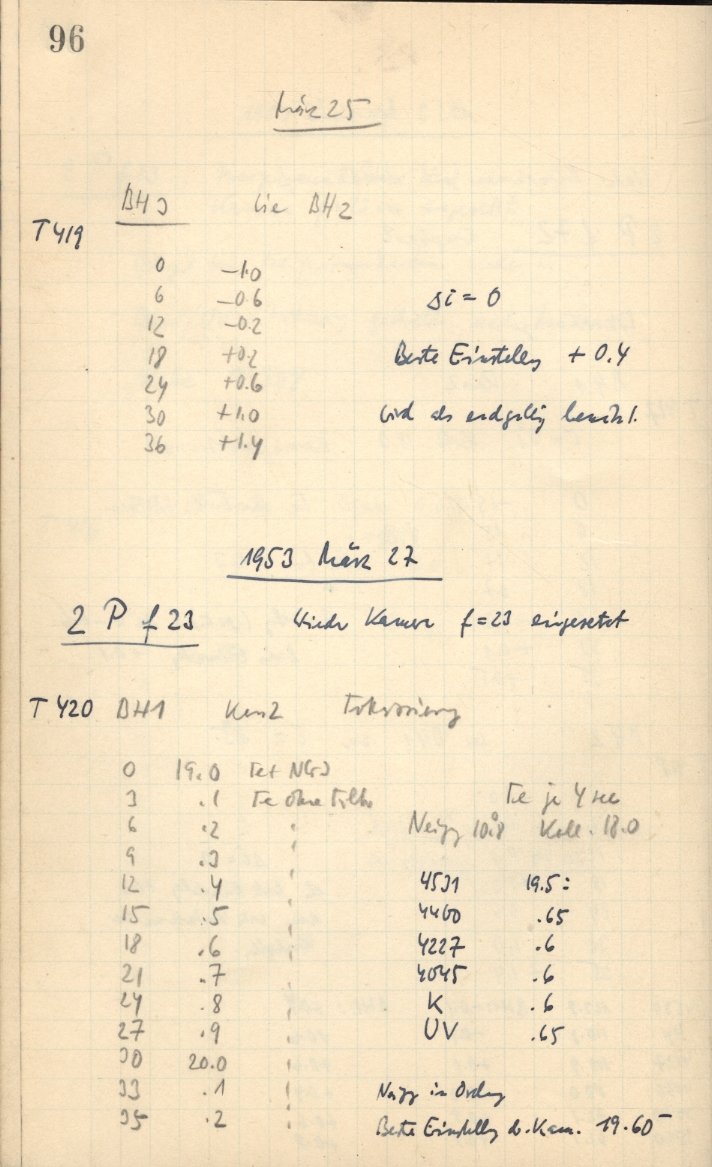 96
März 25
BH3 wie BH2
T419
0 -1.0
6 -0.6
12 -0.2
18 +0.2
24 +0.6
30 +1.0
36 +1.4
Δi = 0
Beste Einstellg + 0.4
wird als endgültig
1953 März 27
2 P f 23 Wieder Kamera f=23 eingesetzt
T 420 BH1 Kam2 Fokussierung
0 19.0
3 .1 Fe ohne Filter
6 .2 "
9 .3 "
12 .4 "
15 .5 "
18 .6 "
21 .7 "
24 .8 "
27 .9 "
30 20.0 "
33 .1 "
35 .2 "
Fe je 4 sec
Neigg 10.8 Koll. 18.0
4531 19.5:
4460 .65
4227 .6
4045 .6
K .6
UV .65
Neigg in Ordng
Beste Einstellg d. Kam. 19.60